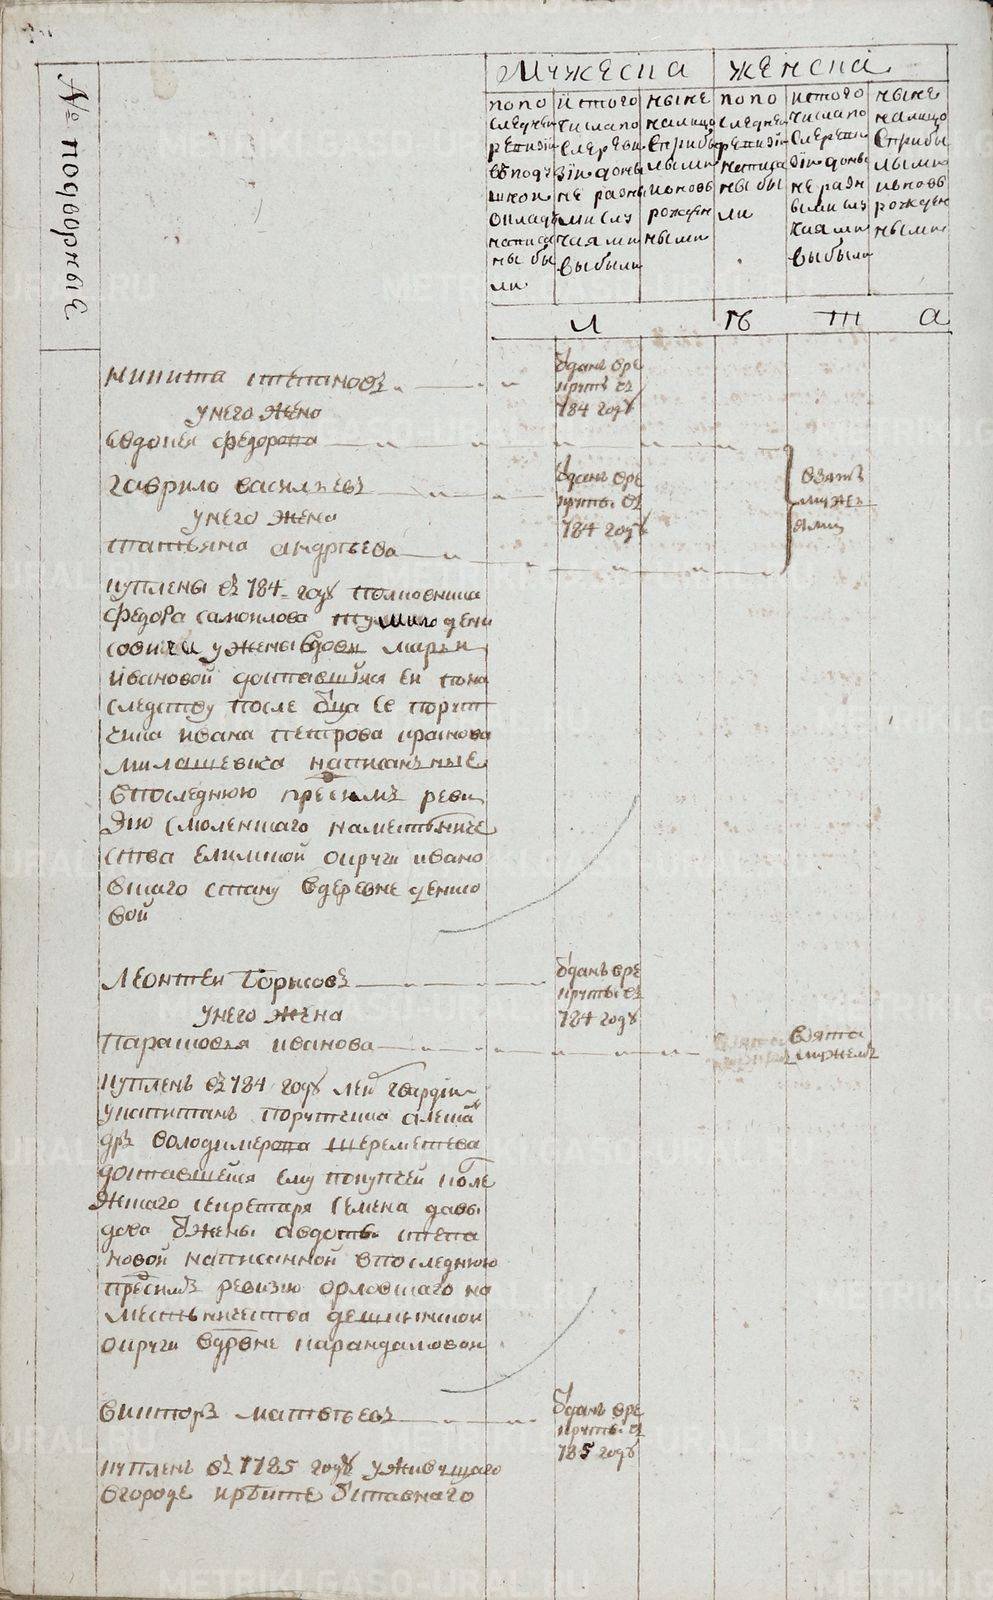 № подворные
Мужеска
женска
по по
следней
ревизіи
въ подъ
шном
окладъ
написа
ны бы
ли
ис того
числа по
сле реви
зіи доны
не разны
ми слу
чаями
выбыли
ныне
на лицо
с прибы
лыми
и новъ
рожден
ными
по по
следней
ревизіи
написа
ны бы
ли
ис того
числа по
сле реви
зіи доны
не разн
ыми слу
чаями
выбыли
ныне
на лицо
с прибы
лыми
и новъ
рожден
ными
л ѣ т а
Никита степановъ
ѿданъ вре
круты въ
784 годꙋ
у него жена
Евдокея федорова
Гаврило васильевъ
ѿданъ вре
круты въ
784 годꙋ
взяты
мужь
ями
у него жена
татьяна андрѣева
куплены въ 784 годꙋ полковника
федора самоилова сына
у жены вдовы марьи
ивановой доставшїяся ей по на
следству после ѿца ее порут
чика ивана петрова краснова
милашевича написанные
в последнюю пред симъ реви
зию смоленскаго наместъниче
ства елнинской округи ивано
вскаго стану в деревне денисо
вой
Леонтей борисовъ
ѿданъ вре
круты въ
784 годꙋ
у него жена
Парасковья иванова
взята
с мужемъ
купленъ въ 784 годꙋ лейб гвардіи
у капитанъ порутчика алекса
дръ володимерова шереметева
доставшейся ему покупкой коле
жскаго секретаря семена давы
дова ѿ жены авдотьи степа
новой написанной в последнюю
пред симъ ревизию орловскаго на
местьничества
округи в дрвне карандаковой
Викторъ матвѣевъ
ѿданъ вре
круты въ
785 годꙋ
купленъ въ 1785 годꙋ у живущаго
в городе ѿставнаго
METRIKI.GASO-URAL.RU